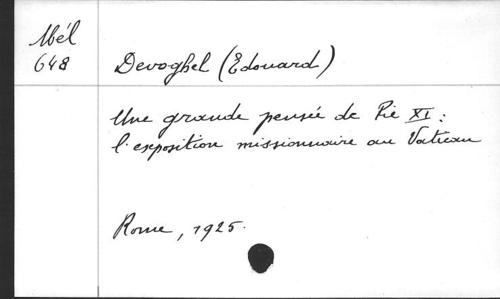 Mél
648
Devoghel (Edouard)
Une grande pensée de Pie XI :
l'exposition missionnaire au Vatican
Rome, 1925.